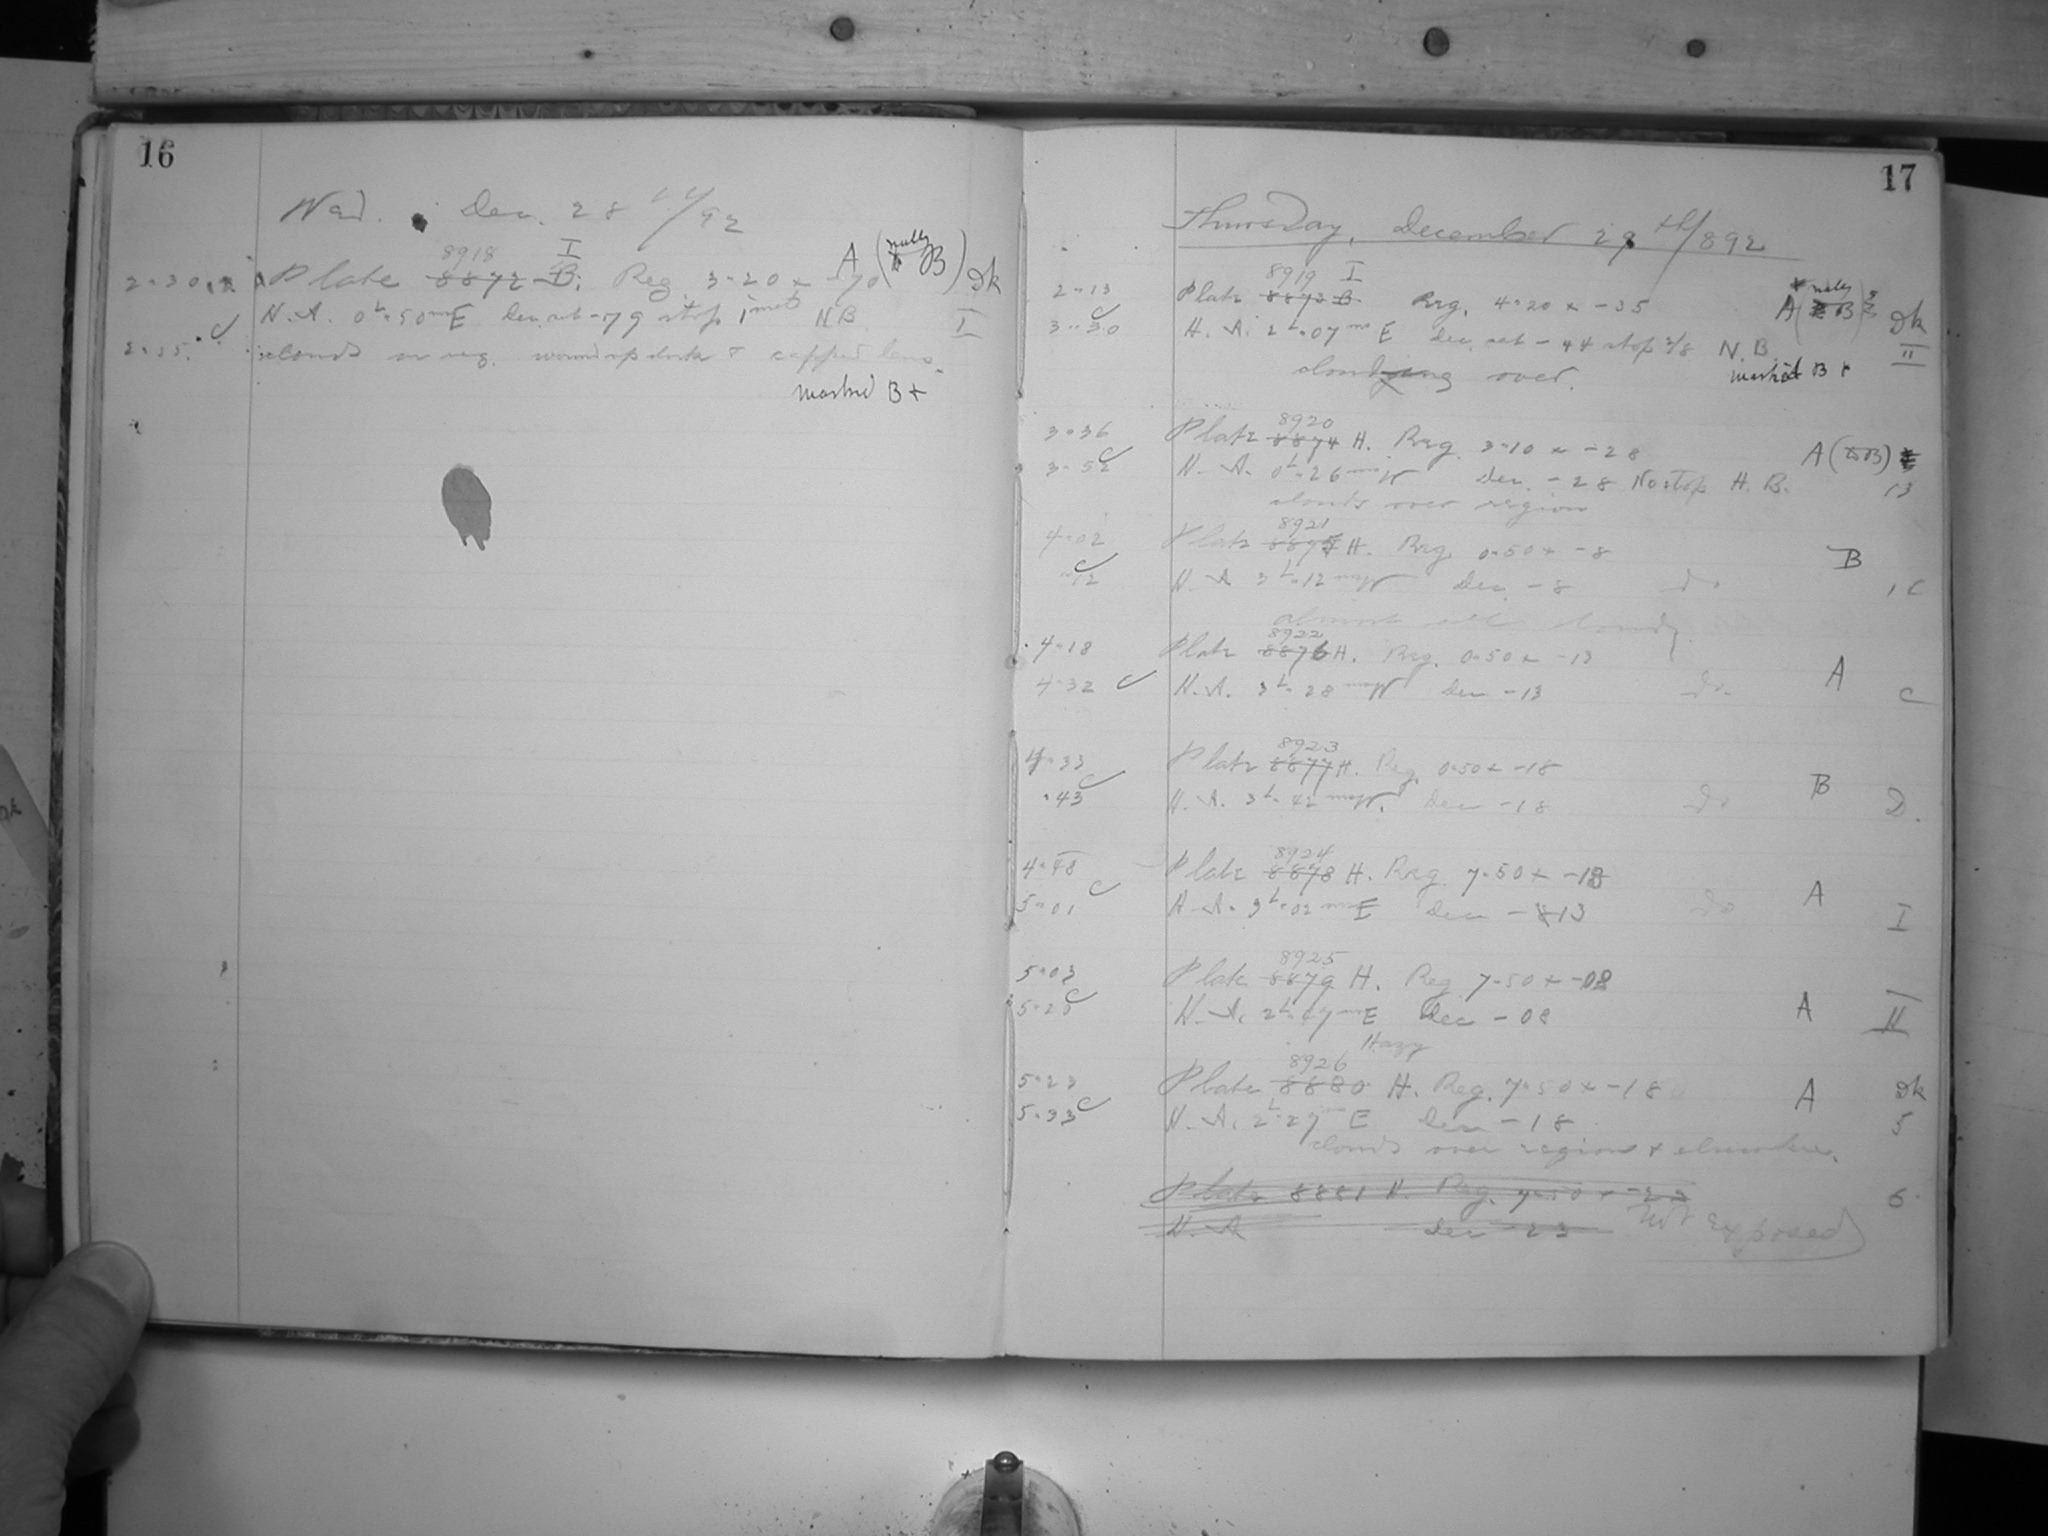 16
Wed. Dec. 28th/92
8918 I
2=30 Plate 8872 B. Reg. 3=20 x -70 A (really B) Dk
H. A. 0h=50m E Dec. set -79 stop 1 inch NB I
2=35 clouds in reg. wound up clock & capped lens.
Marked B+
17
Thursday, December 29th/892
8919 I
2=13 Plate 8873 B Reg. 4=20 x -35 A (really B) Dk
3=30 H. A. 2h=07m E Dec. set -44 stop N.B. II
clouding over. marked B+
8920
3=36 Plate 8874 H. Reg. 3=10 x -28 A
3=52 H. A. 0h=26m W Dec. -28 No stop H. B. 13
clouds over region
8921
4=02 Plate 8875 H. Reg. 0=50 x -8 B
=12 H. A. 3h=12m W Dec. -8 do C
almost all cloudy.
8922
4=18 Plate 8876 H. Reg. 0=50 x -13 A
4=32 H. A. 3h=28m W Dec -13 do. C
8923
4=33 Plate 8877 H. Reg. 0=50 x -18 B
=43 H. A. 3h=42m W. Dec -18 do D.
8924
4=48 Plate 8878 H. Reg. 7=50 x -13 A
5=01 H. A. 3h=02m E Dec -13 do I
8925
5=03 Plate 8879 H. Reg. 7=50 x -08
H. A. E Dec -08 A II
Hazy
8926
5=23 Plate 8880 H. Reg. 7=50 x -18 A Dk
5=33 H. A. 2h=27m E Dec -18 5
clouds over region & elsewhere.
Plate 8881 H. Reg. 7=50 x -23 6
H. A Dec -23 Not exposed